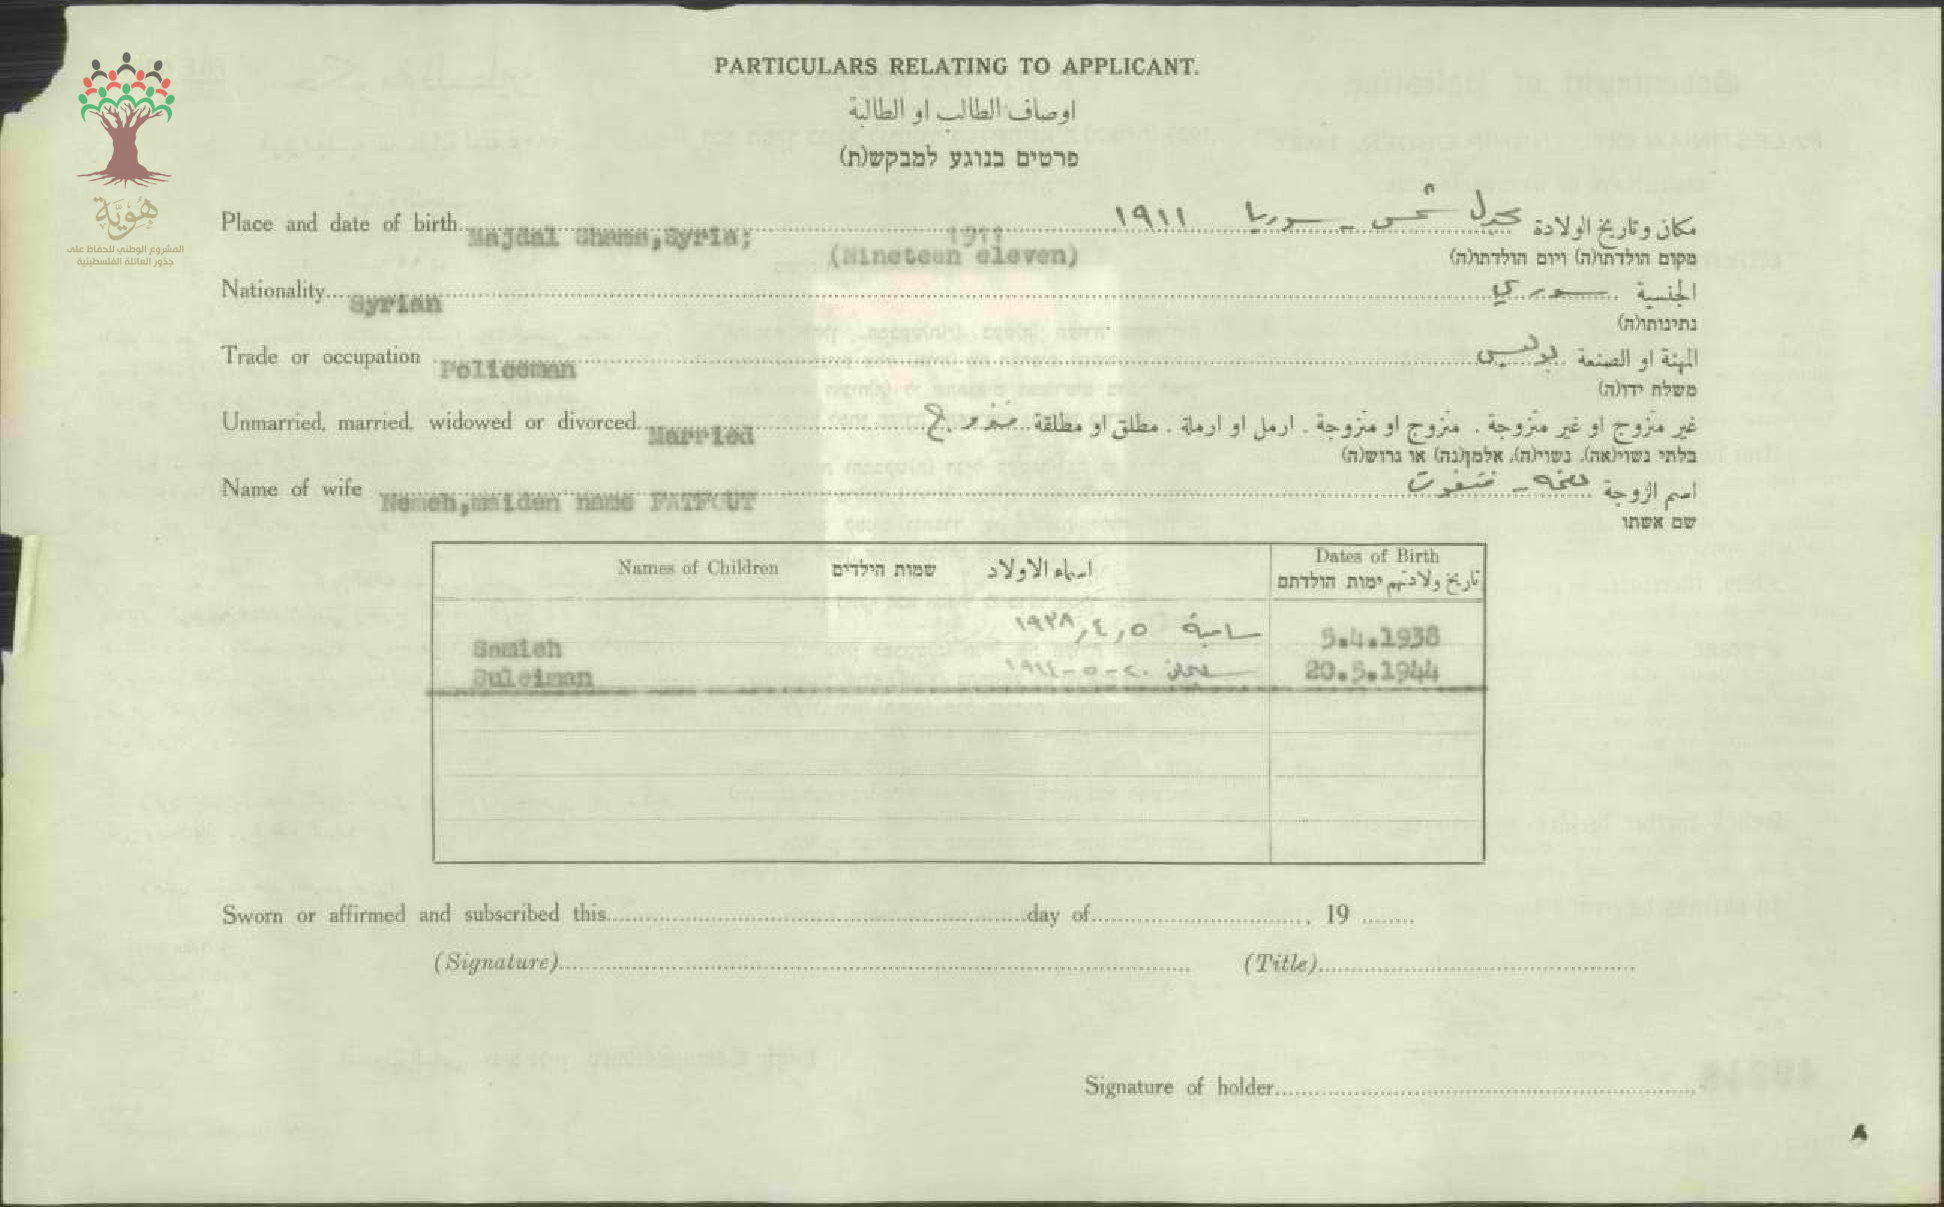 PARTICULARS RELATING TO APPLICANT.
اوصاف الطالب او الطالبة
פרטים בנוגע למבקש(ת)
هُوِيَّة
المشروع الوطني للحفاظ على
جذور العائلة الفلسطينية
Place and date of birth Majdal Shams, Syria; 1911 ١٩١١ مجدل شمس - سوريا مكان وتاريخ الولادة
(Nineteen eleven) מקום הולדתו(ה) ויום הולדתו(ה)
Nationality Syrian سوري الجنسية
נתינותו(ה)
Trade or occupation Policeman بوليس المهنة او الصنعة
משלח ידו(ה)
Unmarried, married, widowed or divorced. Married متزوج غير متزوج او غير متزوجة . متزوج او متزوجة . ارمل او ارملة . مطلق او مطلقة
בלתי נשוי(אה), נשוי(ה), אלמן(נה) או גרוש(ה)
Name of wife Nemeh, maiden name FATFOUT اسم الزوجة
שם אשתו
Names of Children שמות הילדים اسماء الاولاد Dates of Birth
تاريخ ولادتهم ימות הולדתם
Samieh سامية ١٩٣٨,٤,٥ 5.4.1938
Suleiman سليمان ٢٠-٥-١٩٤٤ 20.5.1944
Sworn or affirmed and subscribed this day of , 19
(Signature) (Title)
Signature of holder